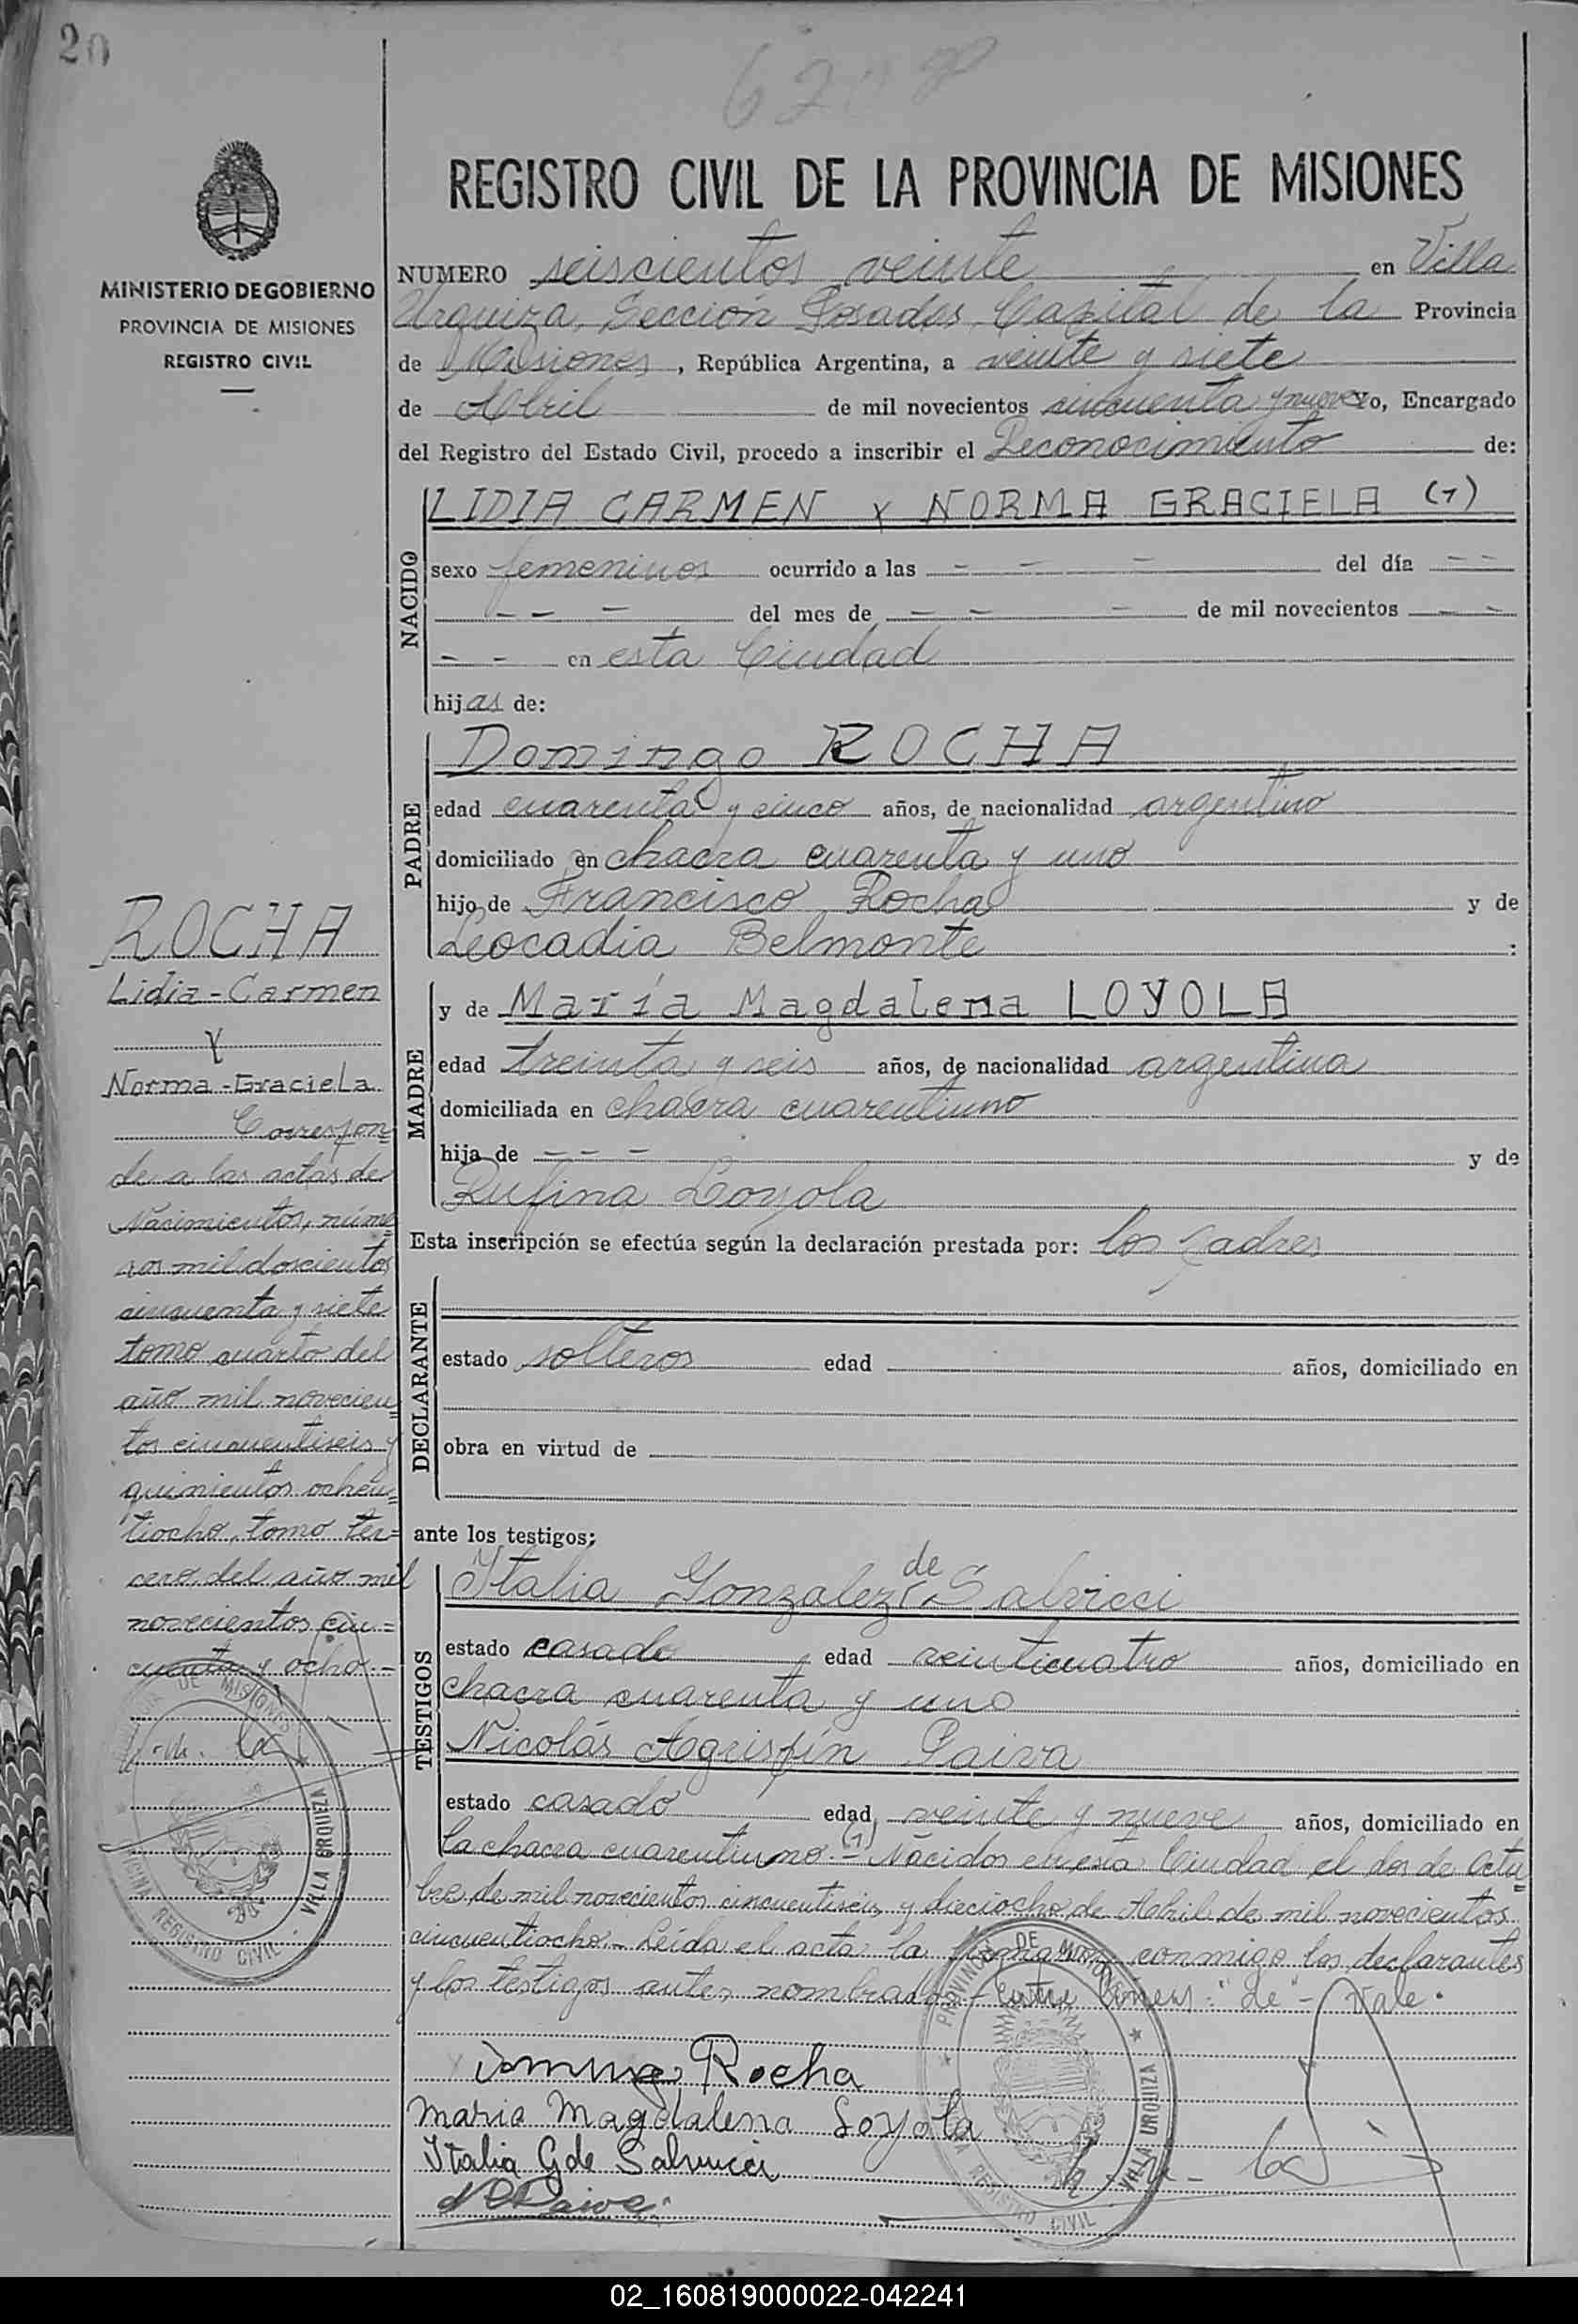 20
620
REGISTRO CIVIL DE LA PROVINCIA DE MISIONES
MINISTERIO DE GOBIERNO
PROVINCIA DE MISIONES
REGISTRO CIVIL
NUMERO seiscientos veinte en Villa
Urquiza, Sección Posadas, Capital de la Provincia
de Misiones, República Argentina, a veinte y siete
de Abril de mil novecientos cincuenta y nueve Yo, Encargado
del Registro del Estado Civil, procedo a inscribir el Reconocimiento de:
NACIDO
LIDIA CARMEN y NORMA GRACIELA (1)
sexo femeninos ocurrido a las - - - del día - -
- - - del mes de - - - de mil novecientos - -
- - en esta Ciudad
hijas de:
PADRE
Domingo ROCHA
edad cuarenta y cinco años, de nacionalidad argentino
domiciliado en chacra cuarenta y uno
hijo de Francisco Rocha y de
Leocadia Belmonte :
MADRE
y de María Magdalena LOYOLA
edad treinta y seis años, de nacionalidad argentina
domiciliada en chacra cuarentiuno
hija de - - - y de
Rufina Loyola
Esta inscripción se efectúa según la declaración prestada por: los padres
DECLARANTE
estado solteros edad años, domiciliado en
obra en virtud de
ante los testigos:
TESTIGOS
Italia Gonzalez de Salvicci
estado casado edad veinticuatro años, domiciliado en
chacra cuarenta y uno
Nicolás Agrispín Paiva
estado casado edad veinte y nueve años, domiciliado en
la chacra cuarentiuno.- (1) Nacidos en esta Ciudad el dos de Octu=
bre de mil novecientos cincuentiseis y dieciocho de Abril de mil novecientos
cincuentiocho.- Leída el acta la firman conmigo los declarantes
y los testigos antes nombrados.- Entre líneas: "de" - Vale.
Domingo Rocha
Maria Magdalena Loyola
Italia G de Salvucci
N A Paiva
ROCHA
Lidia-Carmen
Y
Norma-Graciela
Correspon=
de a las actas de
Nacimientos, núme=
ros mil doscientos
cincuenta y siete
tomo cuarto del
año mil novecien=
tos cincuentiseis y
quinientos ochen=
tiocho, tomo ter=
cero, del año mil
novecientos cin=
cuenta y ocho.-
PROVINCIA DE MISIONES
VILLA URQUIZA
OFICINA REGISTRO CIVIL
PROVINCIA DE MISIONES
VILLA URQUIZA
REGISTRO CIVIL
02_160819000022-042241